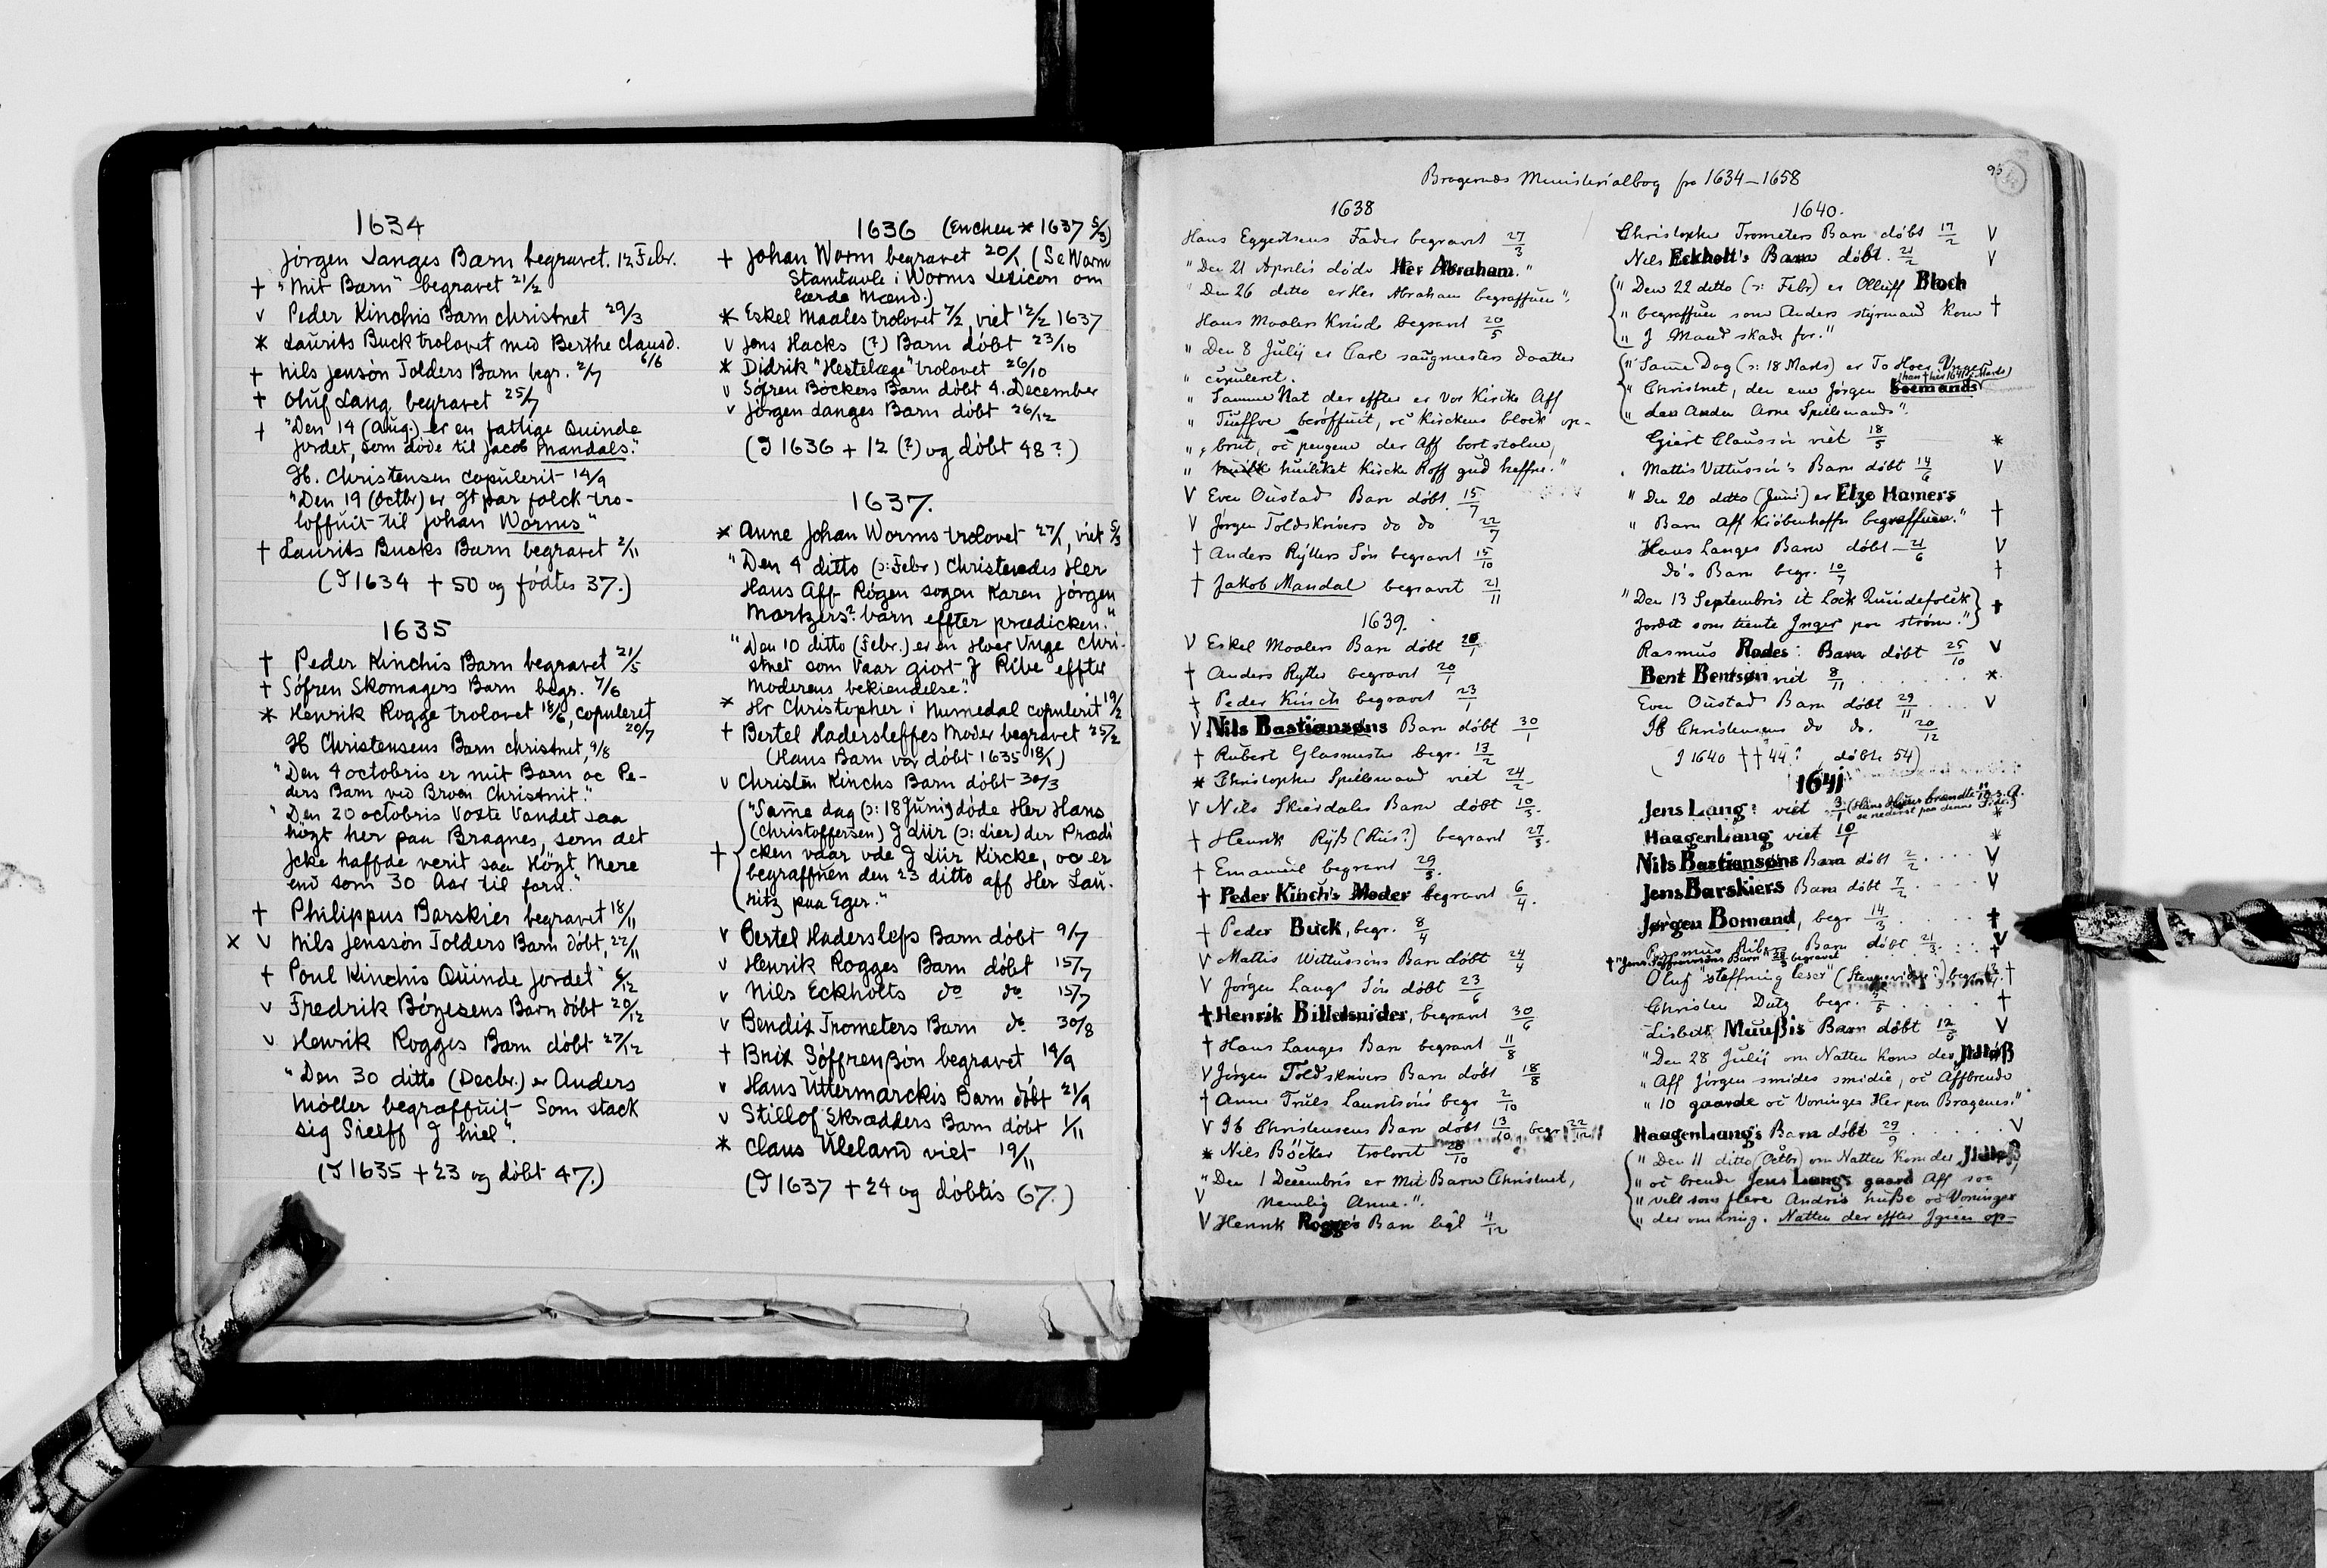 1634
Jørgen Langes Barn begravet. 12 Febr.
† "Mit Barn" begravet 21/2
v Peder Kinchis Barn christnet 29/3
* Laurits Buck trolovet med Berthe Clausd.
6/6
† Nils Jensøn Tolders Barn begr. 2/7
† Oluf Lang begravet 25/7
† "Den 14 (Aug.) er en fattige Quinde
Jordet, som døde til Jacob Mandals."
H. Christensen copulerit 14/9
"Den 19 (Octbr) er Jt par folck tro-
loffuit til Johan Worms"
† Laurits Bucks Barn begravet 2/11
(I 1634 † 50 og fødtes 37.)
1635
† Peder Kinchis Barn begravet 21/5
† Søfren Skomagers Barn begr. 7/6
* Henrik Rogge trolovet 18/6, copuleret
20/7
H Christensens Barn christnet, 9/8
"Den 4 octobris er mit Barn oc Pe-
ders Barn ved Broen Christnit."
"Den 20 octobris Voxte Vandet saa
høgt her paa Bragnes, som det
Jcke haffde verit saa Høgt Mere
end som 30 Aar til forn."
† Philippus Barskier begravet 18/11
x v Nils Jenssøn Tolders Barn døbt, 22/11
† Poul Kinchis Quinde Jordet 6/12
v Fredrik Børgesens Barn døbt 20/12
v Henrik Rogges Barn døbt 27/12
"Den 30 ditto (Decbr.) er Anders
Møller begraffuit Som stack
sig Sielff J hiel".
(I 1635 † 23 og døbt 47.)
1636 (Enchen * 1637 5/3)
† Johan Worm begravet 20/1 (Se Worm
Stamtavle i Worms Lexicon om
lærde Mænd.)
* Eskel Maales trolovet 7/2, viet 12/2 1637
v Jens Hacks (?) Barn døbt 23/10
* Didrik "Hestelæge" trolovet 26/10
v Søfren Bøckers Barn døbt 4. December
v Jørgen Langes Barn døbt 26/12
(I 1636 † 12 (?) og døbt 48?)
1637.
* Anne Johan Worms trolovet 27/1, viet 5/3
"Den 4 ditto (ɔ: Febr) Christendes Her
Hans Aff Røgen sogen Karen Jørgen
Martzers? barn effter prædicken."
"Den 10 ditto (Febr.) er en Hoer Vnge Chri-
stnet som Vaar giort J Ribe effter
Moderens bekiendelse."
* Hr Christopher i Numedal copulerit 19/2
† Bertel Hadersleffes Moder begravet 25/2
(Hans Barn var døbt 1635 18/1)
v Christen Kinchs Barn døbt 30/3
"Same dag (ɔ: 18 Junij) døde Her Hans
(Christoffersen) J diir (ɔ: dier) der Prædi
† cken vaar vde J Liir Kircke, oc er
begraffuen den 23 ditto aff Her Lau-
ritz paa Eger."
v Bertel Haderslefs Barn døbt 9/7
v Henrik Rogges Barn døbt 15/7
v Nils Eckholts do do 15/7
v Bendix Trometers Barn do 30/8
† Brix Søffrensøn begravet 14/9
v Hans Uttermarckis Barn døbt 21/9
v Stillof Skrædders Barn døbt 1/11
* Claus Uleland viet 19/11
(I 1637 † 24 og døbtis 67.)
Bragernes Ministerialbog fra 1634–1658
95
1638
Hans Eggertsens Fader begravet 27/3
"Den 21 Aprilis døde Her Abraham."
"Den 26 ditto er Her Abraham begraffuen".
Hans Maalers Kvinde begravet 20/5
"Den 8 Julij er Carl saugmesters daatter
" copuleret.
" Samme Nat der effter er Vor Kircke Aff
" Tiuffve berøffuit, oc Kirckens block op-
" brut, oc pengene der Aff bort stolne,
" huilket Kircke Roff gud heffne."
V Even Oustad Barn døbt 15/7
V Jørgen Toldskrivers do do 22/7
† Anders Rytters Søn begravet 15/10
† Jakob Mandal begravet 21/11
1639.
V Eskel Maalers Barn døbt 20/1
† Anders Rytter begravet 20/1
† Peder Kinch begravet 23/1
V Nils Bastiansøns Barn døbt 30/1
† Rubert Glasmester begr. 13/2
* Christopher Spillemand viet 24/2
V Nils Skiesdales Barn døbt 10/3.
† Henrik Ryß (Riis?) begravet 27/3.
† Emanuel begravet 29/3.
† Peder Kinch's Moder begravet 6/4.
† Peder Buck, begr. 8/4
V Mattis Wittussøns Barn døbt 24/4
V Jørgen Langs Søn døbt 23/6
† Henrik Billedsnider, begravet 30/6
† Hans Langes Barn begravet 11/8
V Jørgen Toldskrivers Barn døbt 18/8
† Anne Truels Lauritsøns begr 2/10
V Ib Christensens Barn døbt 13/10 begr 22/12
* Nils Bøcker trolovet 28/10
"Den 1 Decembris er Mit Barn Christnet,
V Nemlig Anne.".
V Henrik Rogge's Barn 11/12
1640.
Christopher Trometers Barn døbt 17/2 V
Nils Eckholt's Barn døbt. 21/2 V
" Den 22 ditto (ɔ: Febr) er Olluff Bloch
" begraffuen som Anders styrmand kom †
" J Maand skade for."
" Same Dag (ɔ: 18 Marts) er To Hoer Vnger
" Christnet, den ene Jørgen Boemands
" den Anden Arne Spillemands".
Giert Claussøn viet 18/5 *
Mattis Vittussøn's Barn døbt 14/6 V
" Den 20 ditto (Juni) er Elze Hamers
" Barn Aff Kiöbenhaffn begraffuen." †
Hans Langes Barn døbt 21/6 V
do's Barn begr. 10/7 †
"Den 13 Septembris it Lock Quindefolck
Jordet som tiente Inger paa strøm." †
Rasmus Rodes: Barn døbt 25/10 V
Bent Bentsøn viet 8/11 *
Even Oustad Barn døbt 29/11 V
Ib Christensens do do. 20/12
(I 1640 †† 44? døbte 54)
1641
Jens Lang: viet 3/1 (Hans Huus brændte 11/10 s. A.
se nederst paa denne Side.) *
Haagen Lang viet 10/1 *
Nils Bastiansøns Barn døbt 2/2 V
Jens Barskiers Barn døbt 7/2 V
Jørgen Bomand, begr 14/3 †
Rasmus Barn døbt 21/3 V
Oluf "steffning leser" begr †
Christen Dutz begr. †
Lisbedt Muußis Barn døbt 12/5 V
"Den 28 Julij om Natten kom der Jldløß
" Aff Jörgen smides smidie, oc Affbrende
" 10 gaarde oc Voninger Her paa Bragenes."
Haagen Lang's Barn døbt 29/9 V
" Den 11 ditto (Octbr) om Natten kom der Jldløß
" oc brende Jens Langs gaard Aff saa
" vell som flere Andris huße oc Voninger
" der omkring. Natten der effter Igien op-